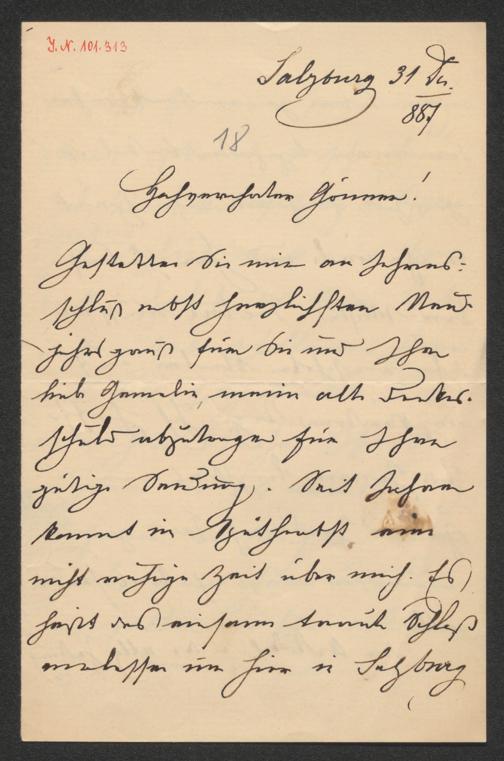 J. N. 101.313
Salzburg 31 Dez.
887
18
Hochverehrter Gönner!
Gestatten Sie mir am Jahres-
schluß nebst herzlichsten Neu-
jahrsgruß für Sie und Ihre
liebe Gemalin, meine alte Dankes-
schuld abzutragen für Ihre
gütige Sendung. Seit Jahren
kommt im Spätherbst eine
nicht ruhige Zeit über mich. Es
heißt das einsame traute Schloß
verlassen um hier in Salzburg